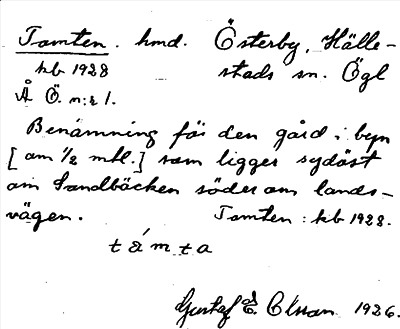 Tomten. hmd. Österby, Hälle-
kb 1928 stads sn. Ögl
Å Ö. n:r 1.
Benämning för den gård i byn
[om ½ mtl.] som ligger sydöst
om Sandbäcken söder om lands-
vägen. Tomten : kb 1928.
Gustaf Olsson 1926.